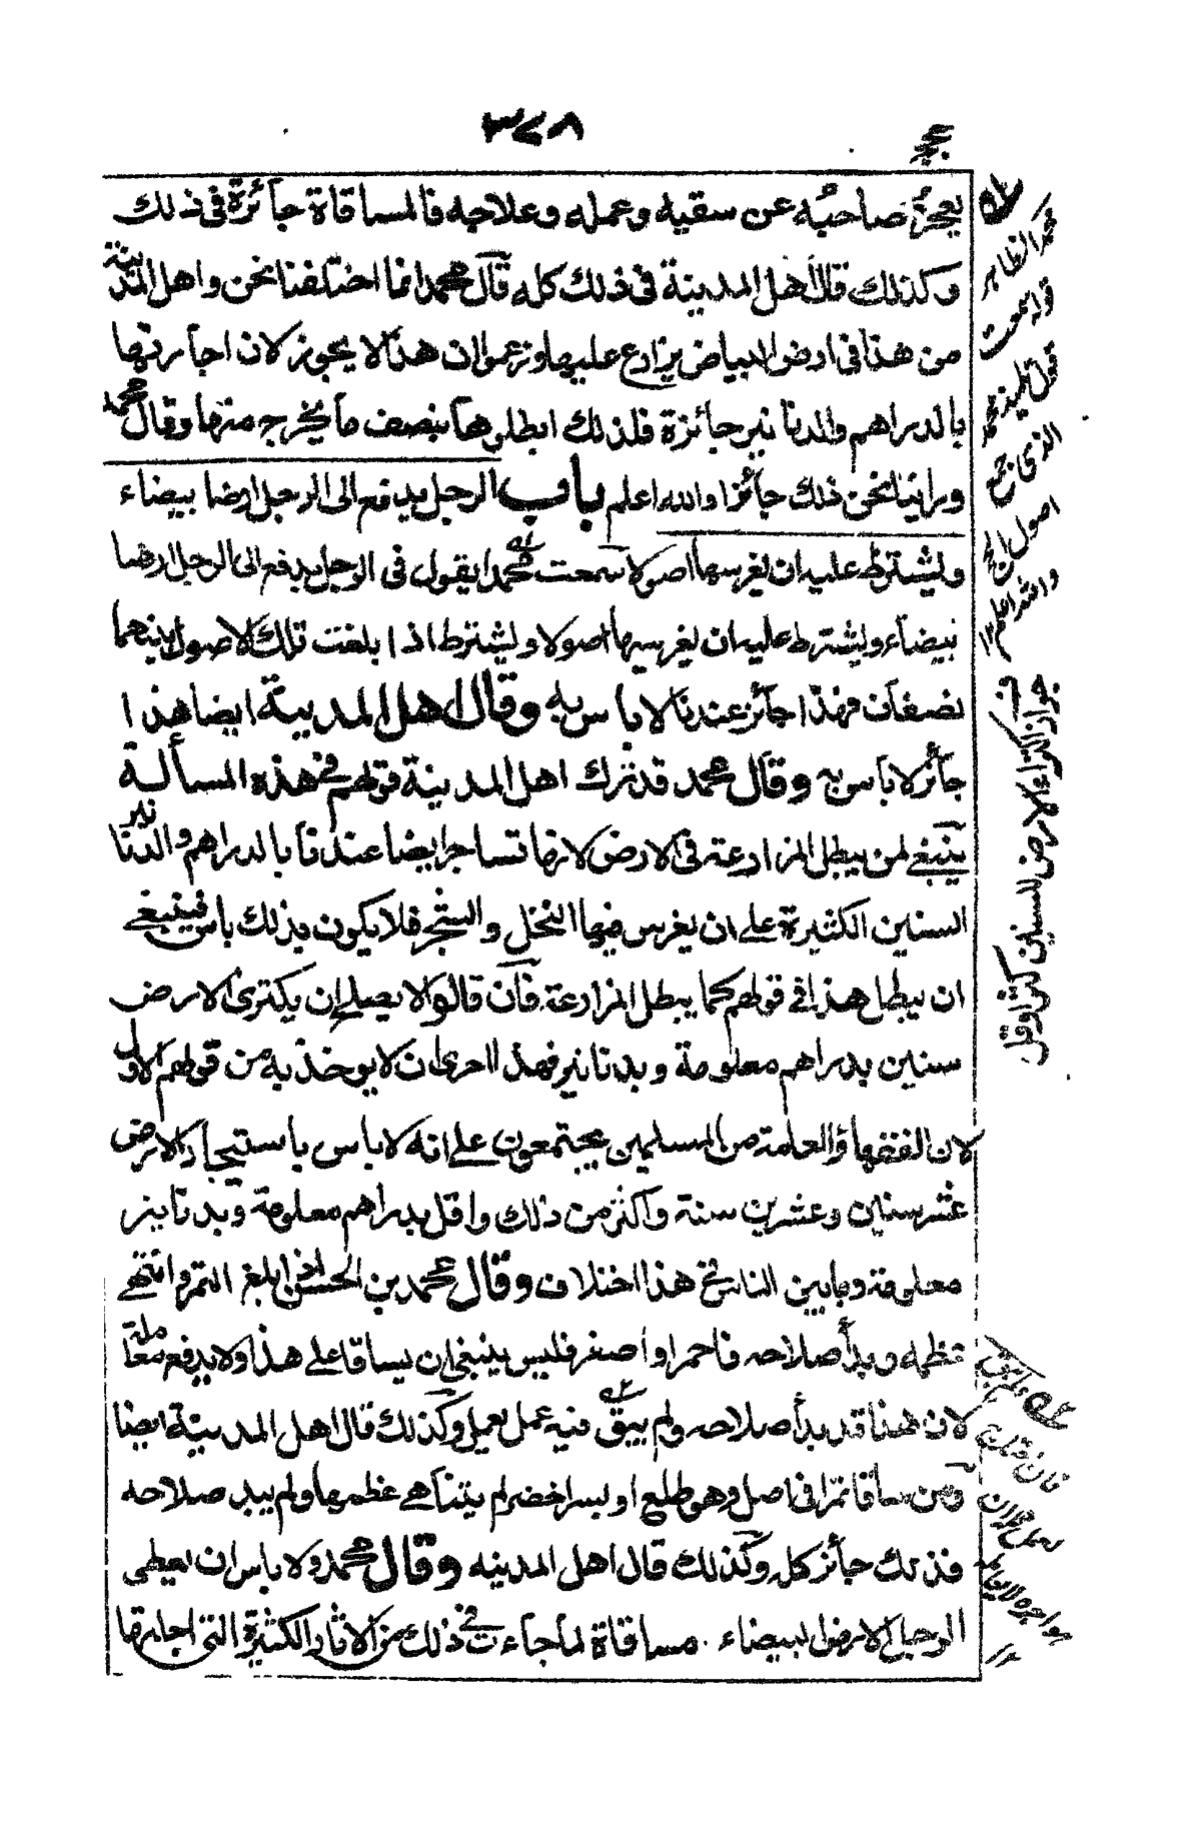 ٣٢٨
يعجز صاحبه عن سقيه وعمله وعلاجه فالمساقاة جائزة فى ذلك
وكذلك قال اهل المدينة فى ذلك كله قال محمد انما اختلفنا نحن واهل المدينة
من هذا فى ارض البياض يزارع عليها وزعموا ان هذا لا يجوز لان اجارتها
بالدراهم والدنانير جائزة فلذلك ابطلوها بنصف ما يخرج منها وقال محمد
ورأينا نحن ذلك جائزا والله اعلم باب الرجل يدفع الى الرجل ارضا بيضاء
ويشترط عليه ان يغرسها اصولا سمعت محمدا يقول فى الرجل يدفع الى الرجل ارضا
بيضاء ويشترط عليه ان يغرسها اصولا ويشترط اذا بلغت تلك الاصول بينهما
نصفان فهذا جائز عندنا لا باس به وقال اهل المدينة ايضا هذا
جائز لا باس به وقال محمد قد ترك اهل المدينة قولهم فى هذه المسألة
ينبغى لمن يبطل المزارعة فى الارض لانها تساجر ايضا عندنا بالدراهم والدنانير
السنين الكثيرة على ان يغرس فيها النخل والشجر فلا يكون بذلك باس فينبغى
ان يبطل هذا فى قولهم كما يبطل المزارعة فان قالوا لا يصلح ان يكترى الارض
سنين بدراهم معلومة وبدنانير فهذا احرى ان لا يوخذ به من قولهم الاول
لان الفقهاء والعامة من المسلمين مجتمعون على انه لا باس باستيجار الارض
عشر سنين وعشرين سنة واكثر من ذلك واقل بدراهم معلومة وبدنانير
معلومة وما بين الناس فى هذا اختلاف وقال محمد بن الحسن اذا بلغ الثمر وانتهى
عظمه وبدأ صلاحه فاحمر او اصفر فليس ينبغى ان يساقا على هذا ولا يدفع معاملة
لان هذا قد بدأ صلاحه ولم يبق فيه عمل يعمل وكذلك قال اهل المدينة ايضا
ومن ساقا ثمرا فى اصل وهو طلع او بسر اخضر لم يتناهى عظمها ولم يبد صلاحه
فذلك جائز كله وكذلك قال اهل المدينه وقال محمد ولا باس ان يعطى
الرجل الارض البيضاء مساقاة لما جاءت فى ذلك من الاثار الكثيرة التى اجازتها
الظاهر
قوله سمعت
قول تلميذ محمد
الذى جمع
اصول
والله اعلم ١٢
جواز كراء الارض للسنين كثر او قل